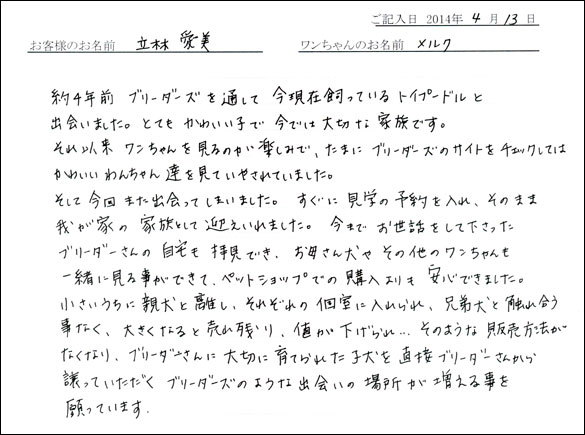 ご記入日 2014年 4月 13日
お客様のお名前 立林 愛美 ワンちゃんのお名前 メルク
約4年前 ブリーダーズを通して 今現在飼っているトイプードルと
出会いました。とても かわいい子で 今では大切な 家族です。
それ以来 ワンちゃんを見るのが楽しみで、たまに ブリーダーズのサイトをチェックしては
かわいいわんちゃん達を見ていやされていました。
そして今回 また出会ってしまいました。 すぐに見学の予約を入れ、そのまま
我が家の 家族として 迎えいれました。 今まで お世話をして下さった
ブリーダーさんの 自宅も 拝見でき、お母さん犬や その他のワンちゃんも
一緒に見る事ができて、ペットショップでの 購入よりも 安心できました。
小さいうちに親犬と離し、それぞれの 個室に入れられ、兄弟犬と触れ合う
事なく、大きくなると売れ残り、値が下げられ… そのような 販売方法が
なくなり、ブリーダーさんに 大切に育てられた子犬を直接ブリーダーさんから
譲っていただく ブリーダーズのような出会いの 場所が 増える事を
願っています.